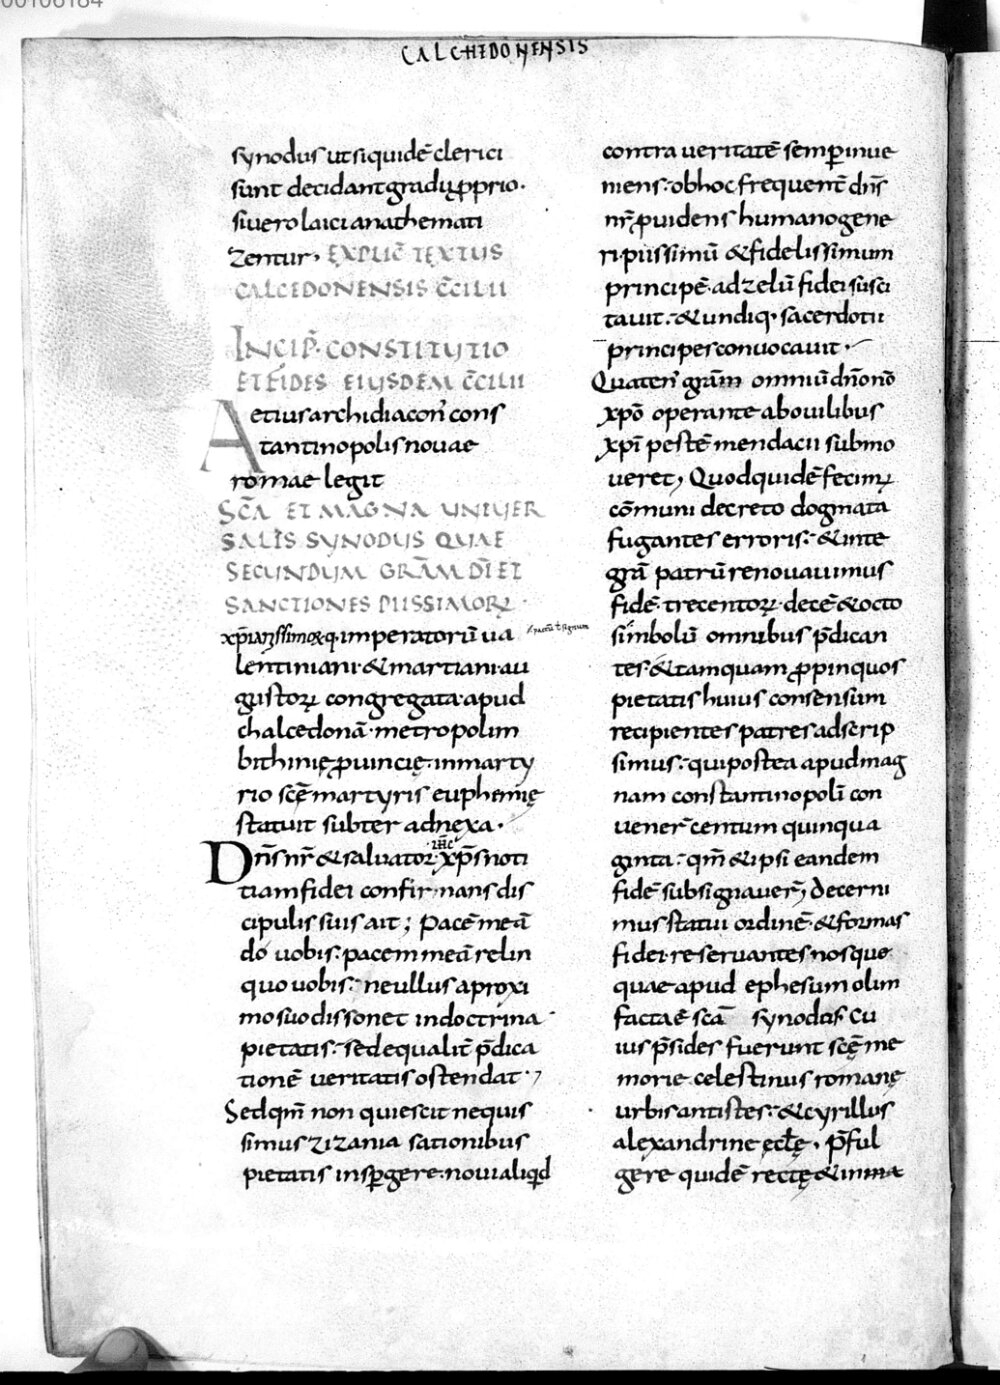 00106184
CALCHEDONENSIS
synodus utsiquidē clerici
sunt decidant gradu ꝓprio.
siuero laici anathemati
zentur, EXPLIC̄ TEXTUS
CALCEDONENSIS C̄CILII
INCIP̄. CONSTITUTIO
ET FIDES EIUSDEM C̄CILII
Aetius archidiacon̄ cons
tantinopolis nouae
romae legit
SC̄A ET MAGNA UNIUER
SALIS SYNODUS QUAE
SECUNDUM GRĀM DĪ ET
SANCTIONES PIISSIMORꝜ
imperatorū ua
lentiniani. & martiani. au
gustoꝝ congregata. apud
chalcedonā. metropolim
bithinię ꝓuincię. inmarty
rio scę̄ martyris euphemię
statuit subter adnexa.
ih̄c
Dn̄s nr̄ & saluator. xp̄s noti
tiam fidei confirmans dis
cipulis suis ait; Pacē meā
do uobis. pacem meā relin
quo uobis. neullus aproxi
mo suo dissonet indoctrina
pietatis. sed equalit̄ p̄dica
tionē ueritatis ostendat.,
Sed qm̄ non quiescit nequis
simus zizania sationibus
pietatis insꝑgere. noui aliqd
contra ueritatē semꝑ inue
niens. obhoc frequent̄ dn̄s
nr̄ ꝓuidens humano gene
ri piissimū & fidelissimum
principē. adzelū fidei susci
tauit. & undiq. sacerdotii
principes conuocauit.
Quaten̄ grām omniū dn̄o nō
xp̄o operante abouilibus
xp̄i pestē mendacii submo
ueret, Quodquidē fecimꝰ
cōmuni decreto dogmata
fugantes erroris. & inte
grā patrū renouauimus
fidē. trecentoꝝ. decē & octo
simbolū omnibus p̄dican
tes. & tamquam ꝓpinquos
pietatis huius consensum
recipientes patres adscrip
simus. qui postea apud mag
nam constantinopolī con
uener̄ centum quinqua
ginta. qm̄ & ipsi eandem
fidē subsignauer̄, Decerni
mus statui ordinē. & formas
fidei reseruantes nosque
quae apud ephesum olim
factaē scā synodus cu
ius p̄sides fuerunt scę̄ me
morie. celestinus romanę
urbis antistes. & cyrillus
alexandrine ecl̄ę. p̄ful
gere quidē rectę & inma